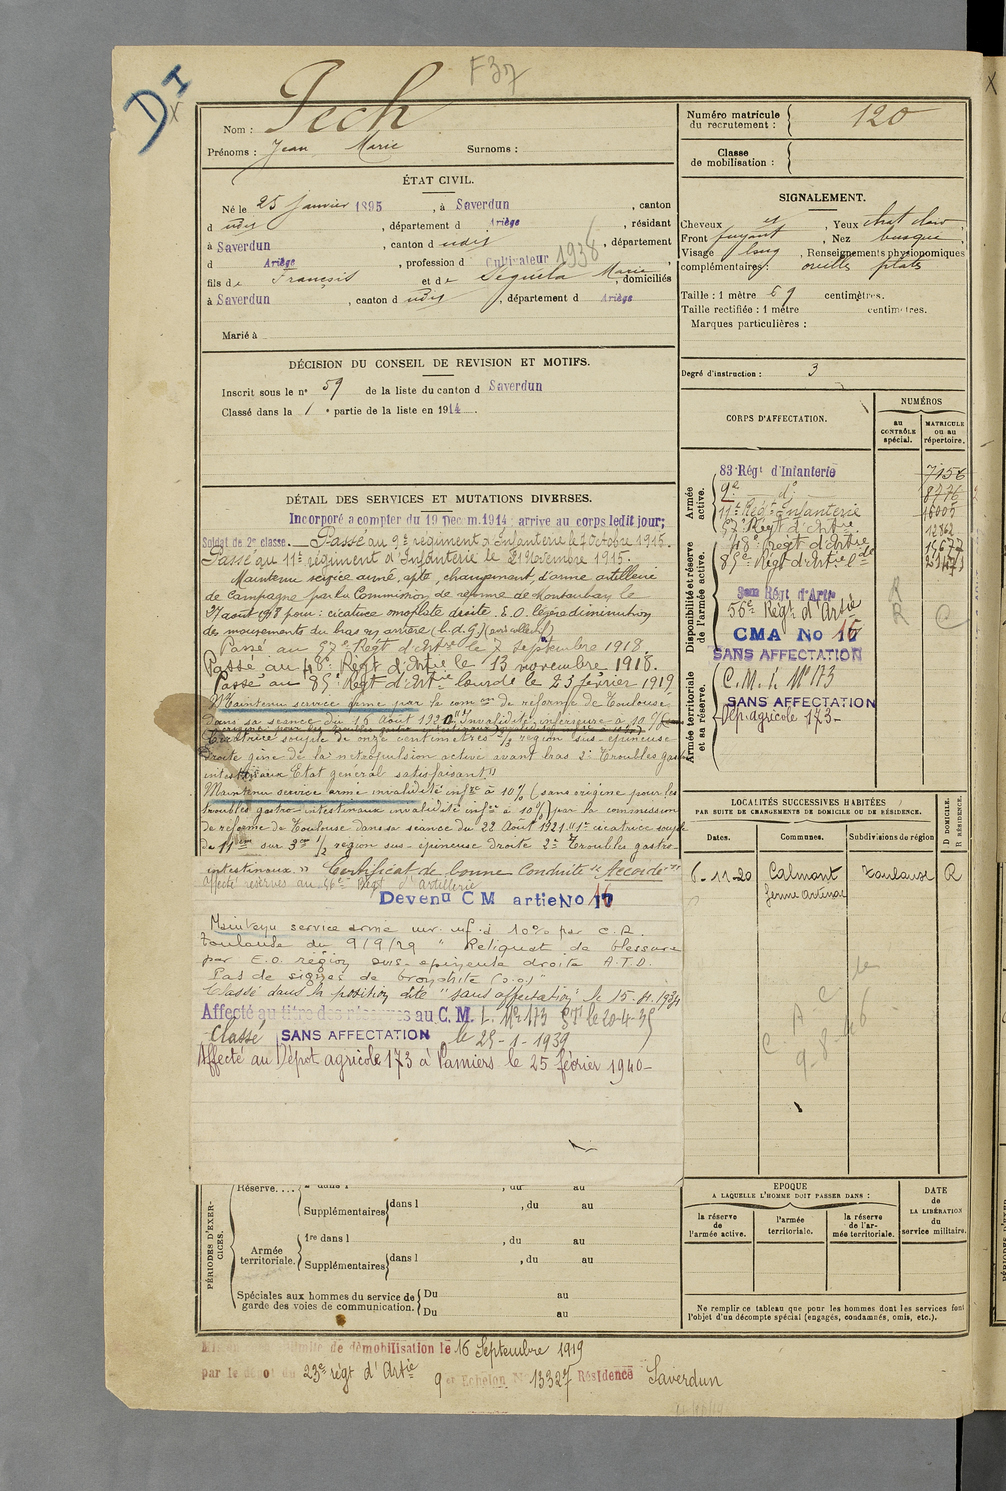 F37
DI
X
Nom : Pech
Prénoms : Jean Marie Surnoms :
Numéro matricule du recrutement : 120
Classe de mobilisation :
ÉTAT CIVIL.
Né le 25 janvier 1895, à Saverdun, canton
d udit, département d Ariège, résidant
à Saverdun, canton d udit, département
d Ariège, profession d Cultivateur 1938
fils de François et de Seguela Marie, domiciliés
à Saverdun, canton d udit, département d Ariège
Marié à
SIGNALEMENT.
Cheveux, Yeux chat clair
Front fuyant, Nez busqué,
Visage long, Renseignements physionomiques
complémentaires : oreilles plates
Taille : 1 mètre 69 centimètres.
Taille rectifiée : 1 mètre centimètres.
Marques particulières :
Degré d'instruction : 3
DÉCISION DU CONSEIL DE REVISION ET MOTIFS.
Inscrit sous le n° 59 de la liste du canton d Saverdun
Classé dans la 1e partie de la liste en 1914.
DÉTAIL DES SERVICES ET MUTATIONS DIVERSES.
Incorporé a compter du 19 Decm.1914; arrive au corps ledit jour;
Soldat de 2e classe. Passé au 9e regiment d'Infanterie le 7 octobre 1915.
Passé au 11e régiment d'Infanterie le 21 Novembre 1915.
Maintenu service armé, apte, changement d'arme artillerie
de Campagne par la Commission de réforme de Montauban le
27 août 1918 pour : cicatrice omoplate droite. E.O. légère diminution
des mouvements du bras en arrière (b.d.G)
Passé au 57e Régt d'Artie le 7 Septembre 1918.
Passé au 48e Régt d'Artie le 13 novembre 1918.
Passé au 85e Régt d'Artie lourde le 23 février 1919
Maintenu service armé par la comon de réforme de Toulouse
dans sa séance du 16 Août 1920 "Invalidité inférieure à 10 %
Cicatrice souple de onze centimètres 1/3 région sus-épineuse
droite gène de la rétropulsion active avant bras 2° Troubles gastro
intestinaux Etat général satisfaisant"
Maintenu service armé invalidité infre à 10% (sans origine pour les
troubles gastro intestinaux invalidité infre à 10%) par la commission
de réforme de Toulouse dans sa séance du 22 Août 1921 "1° cicatrice souple
de 11cm sur 3cm 1/2 région sus-épineuse droite 2° Troubles gastro-
intestinaux" Certificat de bonne Conduite "Accordé"
Affecté réserves au 56e Régt d'artillerie
Devenu C M artie No 16
Maintenu service armé inv. inf. à 10% par C.R.
Toulouse du 9/9/29 "Reliquat de blessure
par E.O. région sus-epineuse droite A.T.D.
Pas de signes de bronchite
Classé dans la position dite "sans affectation" le 15-11-1934
Affecté au titre des réserves au C. M. I. No 173 le 20-4-35
Classé SANS AFFECTATION le 25-1-1939
Affecté au Dépot agricole 173 à Pamiers le 25 février 1940-
CORPS D'AFFECTATION.
NUMÉROS
au CONTRÔLE spécial.
MATRICULE ou au répertoire.
Armée active.
83 Régt d'Infanterie 7156
9e do 8776
11e Régt Infanterie 16005
57e Régt d'Artie
Disponibilité et réserve de l'armée active.
48e Régt d'Artie
85e Régt d'Artie
56e Régt d'Artie R C
CMA No 16
SANS AFFECTATION
Armée territoriale et sa réserve.
C.M.I. No 173
SANS AFFECTATION
Dép. agricole 173-
LOCALITÉS SUCCESSIVES HABITÉES
PAR SUITE DE CHANGEMENTS DE DOMICILE OU DE RÉSIDENCE.
Dates. Communes. Subdivisions de région
D DOMICILE. R RÉSIDENCE.
6-11-20 Calmont Toulouse R
C. A. C.
9-8-46
PÉRIODES D'EXERCICES.
Réserve.... 2e dans l , du au
Supplémentaires dans l , du au
Armée territoriale. 1re dans l , du au
Supplémentaires dans l , du au
Spéciales aux hommes du service de garde des voies de communication. Du au
Du au
EPOQUE
A LAQUELLE L'HOMME DOIT PASSER DANS :
la réserve de l'armée active.
l'armée territoriale.
la réserve de l'armée territoriale.
DATE de LA LIBÉRATION du service militaire.
Ne remplir ce tableau que pour les hommes dont les services font
l'objet d'un décompte spécial (engagés, condamnés, omis, etc.).
de démobilisation le 16 Septembre 1919
par le dépot du 23e régt d'Artie 9e Echelon No 13327 Résidence Saverdun